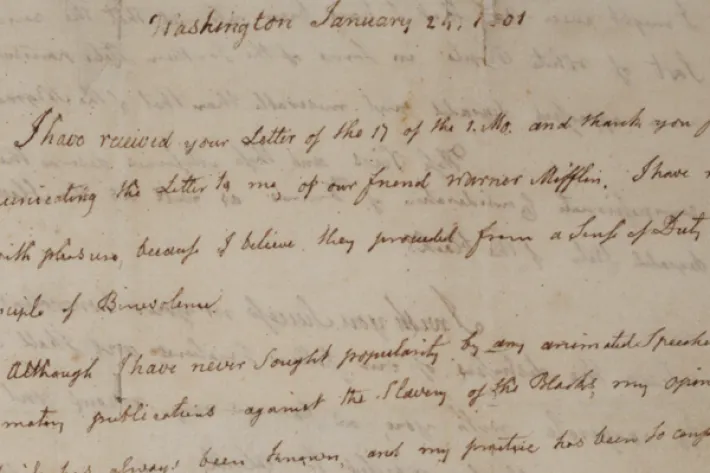 Washington January 24. 1801
I have received your Letter of the 17 of the 1. Mo. and thank you f
unicating the Letter to me, of our friend Warner Mifflin. I have r
ith pleasure, because I believe they proceeded from a Sense of Duty
ciple of Benevolence.
Although I have never Sought popularity by any animated Speeche
matory publications against the Slavery of the Blacks, my opin
has always been known, and my practice has been so conf